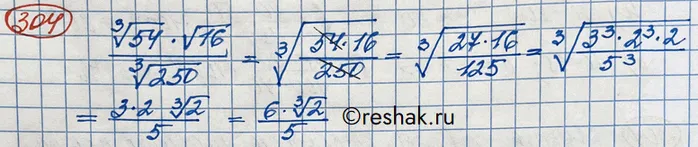 304
∛54 · √16 / ∛250 = ∛(54·16 / 250) = ∛(27·16 / 125) = ∛(3³·2³·2 / 5³)
= 3·2 ∛2 / 5 = 6·∛2 / 5
©reshak.ru